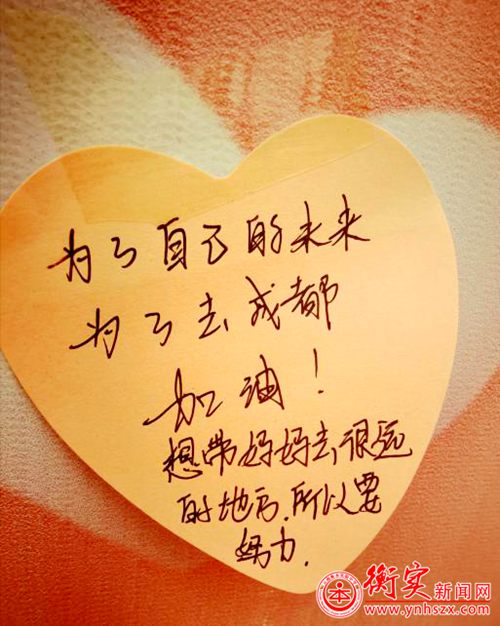 为了自己的未来
为了去成都
加油！
想带妈妈去很远
的地方，所以要
努力．
衡实新闻网
www.ynhszx.com